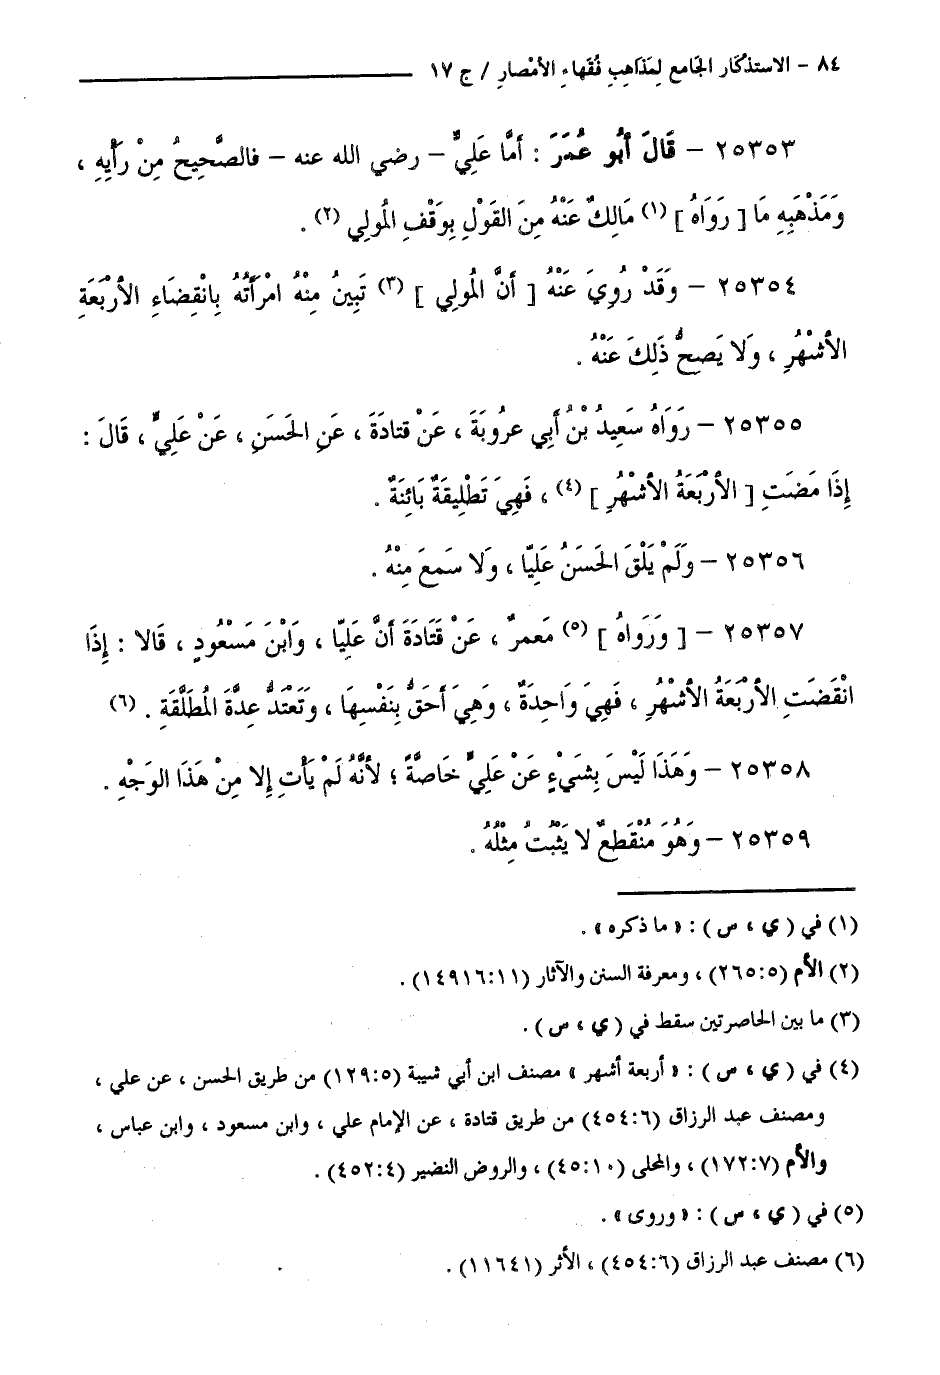 ٨٤ – الاستذكار الجَامع لِمَذَاهِبِ فُقَهاءِ الأمْصارِ / ج ١٧
٢٥٣٥٣ – قَالَ أَبُو عُمَرَ : أمَّا عَلِيٌّ – رضي الله عنه – فالصَّحِيحُ مِنْ رَأيِهِ ،
وَمَذْهَبِهِ مَا [ رَوَاهُ ] (١) مَالِكٌ عَنْهُ مِنَ القَوْلِ بِوَقْفِ المُولِي (٢) .
٢٥٣٥٤ – وَقَدْ رُوِيَ عَنْهُ [ أنَّ المُولِي ] (٣) تَبِينُ مِنْهُ امْرَأتُهُ بِانْقِضَاءِ الأرْبَعَةِ
الأشْهُرِ ، وَلا يَصِحُّ ذَلِكَ عَنْهُ .
٢٥٣٥٥ – رَوَاهُ سَعِيدُ بْنُ أَبِي عروُبَةَ ، عَنْ قتادَةَ ، عَنِ الحَسَنِ ، عَنْ عَلِيٍّ ، قَالَ :
إِذَا مَضَتِ [ الأرْبَعَةُ الأشْهُرِ ] (٤) ، فَهِيَ تَطْلِيقَةٌ بَائِنَةٌ .
٢٥٣٥٦ – وَلَمْ يَلْقَ الحَسَنُ عَلِيّا ، وَلا سَمعَ مِنْهُ .
٢٥٣٥٧ – [ وَرَواهُ ] (٥) مَعمرٌ ، عَنْ قَتَادَةَ أنَّ عَلِيّا ، وَابْنَ مَسْعُودٍ ، قَالا : إِذَا
انْقَضَتِ الأرْبَعَةُ الأشْهُرِ ، فَهِيَ وَاحِدَةٌ ، وَهِيَ أحَقُّ بِنَفْسِهَا ، وَتَعْتَدُّ عِدَّةَ المُطَلَّقَةِ . (٦)
٢٥٣٥٨ – وَهَذَا لَيْسَ بِشَيْءٍ عَنْ عَلِيٍّ خَاصَّةً ؛ لأنَّهُ لَمْ يَأتِ إِلا مِنْ هَذَا الوَجْهِ .
٢٥٣٥٩ – وَهُوَ مُنْقَطعٌ لا يَثْبُتُ مِثْلُهُ .
(١) في ( ي ، س ) : « ما ذكره » .
(٢) الأم (٢٦٥:٥) ، ومعرفة السنن والآثار (١٤٩١٦:١١) .
(٣) ما بين الحاصرتين سقط في ( ي ، س ) .
(٤) في ( ي ، س ) : « أربعة أشهر » مصنف ابن أبي شيبة (١٢٩:٥) من طريق الحسن ، عن علي ،
ومصنف عبد الرزاق (٤٥٤:٦) من طريق قتادة ، عن الإمام علي ، وابن مسعود ، وابن عباس ،
والأم (١٧٢:٧) ، والمحلى (٤٥:١٠) ، والروض النضير (٤٥٢:٤) .
(٥) في ( ي ، س ) : « وروى » .
(٦) مصنف عبد الرزاق (٤٥٤:٦) ، الأثر (١١٦٤١) .